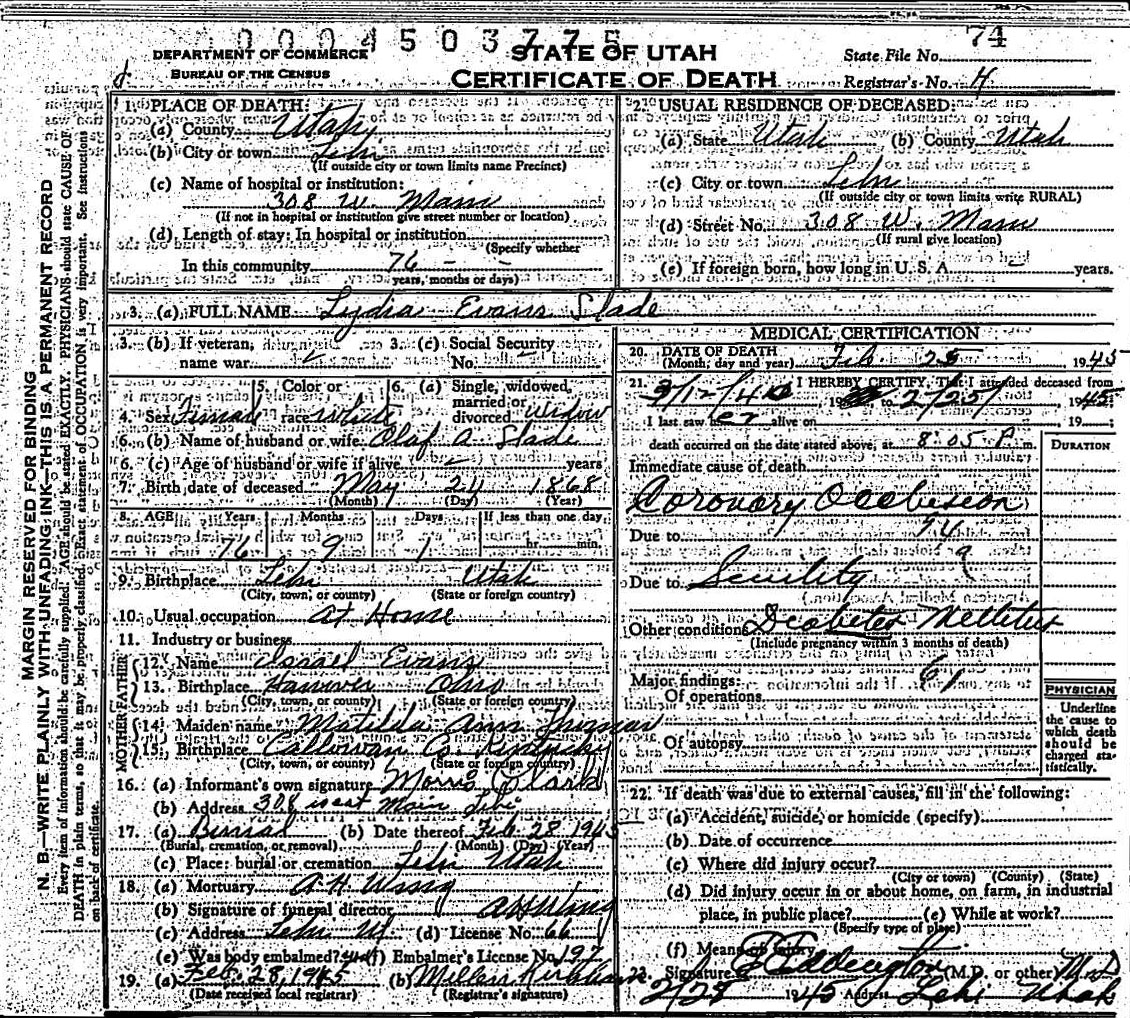 0004503775
74
DEPARTMENT OF COMMERCE
BUREAU OF THE CENSUS
STATE OF UTAH
CERTIFICATE OF DEATH
State File No.
Registrar's No. 4
1. PLACE OF DEATH:
(a) County Utah
(b) City or town Lehi
(If outside city or town limits name Precinct)
(c) Name of hospital or institution:
308 W. Main
(If not in hospital or institution give street number or location)
(d) Length of stay: In hospital or institution
(Specify whether
In this community 76 - -
years, months or days)
2. USUAL RESIDENCE OF DECEASED:
(a) State Utah (b) County Utah
(c) City or town Lehi
(If outside city or town limits write RURAL)
(d) Street No. 308 W. Main
(If rural give location)
(e) If foreign born, how long in U. S. A. - years.
3. (a) FULL NAME Lydia Evans Slade
3. (b) If veteran, 3. (c) Social Security
name war No.
5. Color or 6. (a) Single, widowed,
married or
4. Sex Female race white divorced widow
6. (b) Name of husband or wife Olaf A. Slade
6. (c) Age of husband or wife if alive - years
7. Birth date of deceased May 24 1868
(Month) (Day) (Year)
8. AGE Years Months Days If less than one day
76 9 1 hr. min.
9. Birthplace Lehi Utah
(City, town, or county) (State or foreign country)
10. Usual occupation At Home
11. Industry or business
FATHER
12. Name Israel Evans
13. Birthplace Hanover Ohio
(City, town, or county) (State or foreign country)
MOTHER
14. Maiden name Matilda Ann Thomas
15. Birthplace Callowan Co. Kentucky
(City, town, or county) (State or foreign country)
16. (a) Informant's own signature Morris Clark
(b) Address 308 west Main Lehi
17. (a) Burial (b) Date thereof Feb. 28 1945
(Burial, cremation, or removal) (Month) (Day) (Year)
(c) Place: burial or cremation Lehi Utah
18. (a) Mortuary A H Wing
(b) Signature of funeral director A H Wing
(c) Address Lehi U. (d) License No. 66
(e) Was body embalmed? yes (f) Embalmer's License No. 197
19. (a) Feb. 28, 1945 (b) Kirkham
(Date received local registrar) (Registrar's signature)
MEDICAL CERTIFICATION
20. DATE OF DEATH
(Month, day and year) Feb 25 1945
21. I HEREBY CERTIFY, That I attended deceased from
3/12/40 19 to 2/25/ 1945
I last saw her alive on 19
death occurred on the date stated above, at 8:05 P. m.
DURATION
Immediate cause of death
Coronary Occlusion
94
a
Due to
Due to Senility
Other conditions Diabetes Mellitus
(Include pregnancy within 3 months of death)
61
Major findings:
Of operations
Of autopsy
PHYSICIAN
Underline
the cause to
which death
should be
charged sta-
tistically.
22. If death was due to external causes, fill in the following:
(a) Accident, suicide, or homicide (specify)
(b) Date of occurrence
(c) Where did injury occur?
(City or town) (County) (State)
(d) Did injury occur in or about home, on farm, in industrial
place, in public place? (e) While at work?
(Specify type of place)
(f) Means of injury
23. Signature Eddington (M.D. or other) M.D
2/28 1945 Address Lehi Utah
MARGIN RESERVED FOR BINDING
N. B.—WRITE PLAINLY WITH UNFADING INK—THIS IS A PERMANENT RECORD
Every item of information should be carefully supplied. AGE should be stated EXACTLY. PHYSICIANS should state CAUSE OF
DEATH in plain terms, so that it may be properly classified. Exact statement of OCCUPATION is very important. See instructions
on back of certificate.